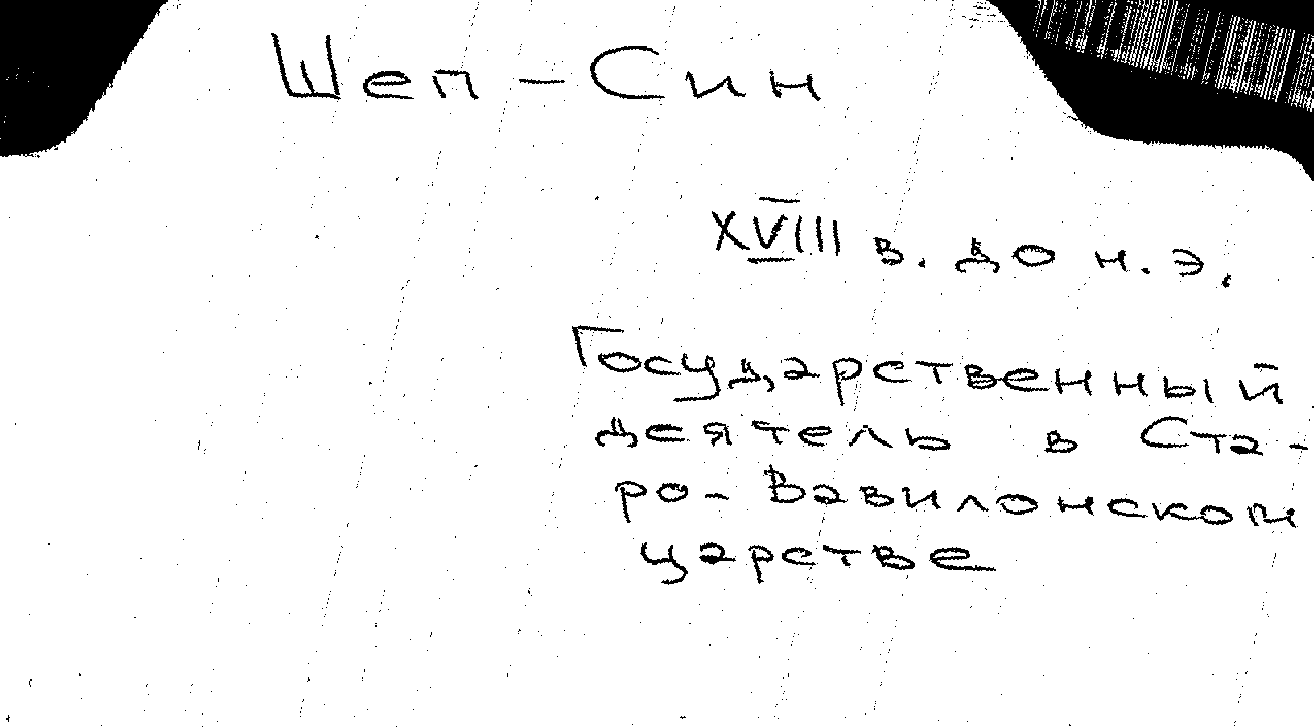 Шеп-Син
XVIII в. до н.э.
Государственный
деятель в Ста-
ро-Вавилонском
царстве